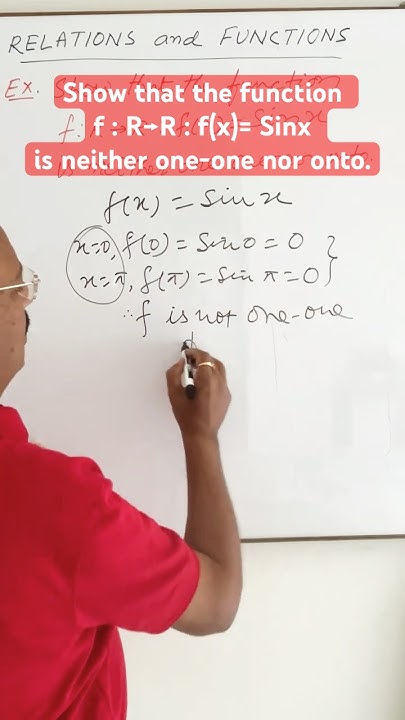 RELATIONS and FUNCTIONS
Ex. Show that the function
Show that the function
f : R→R : f(x)= Sinx
is neither one-one nor onto.
f(x) = Sin x
x=0, f(0) = Sin 0 = 0
x=π, f(π) = Sin π = 0
∴ f is not one-one